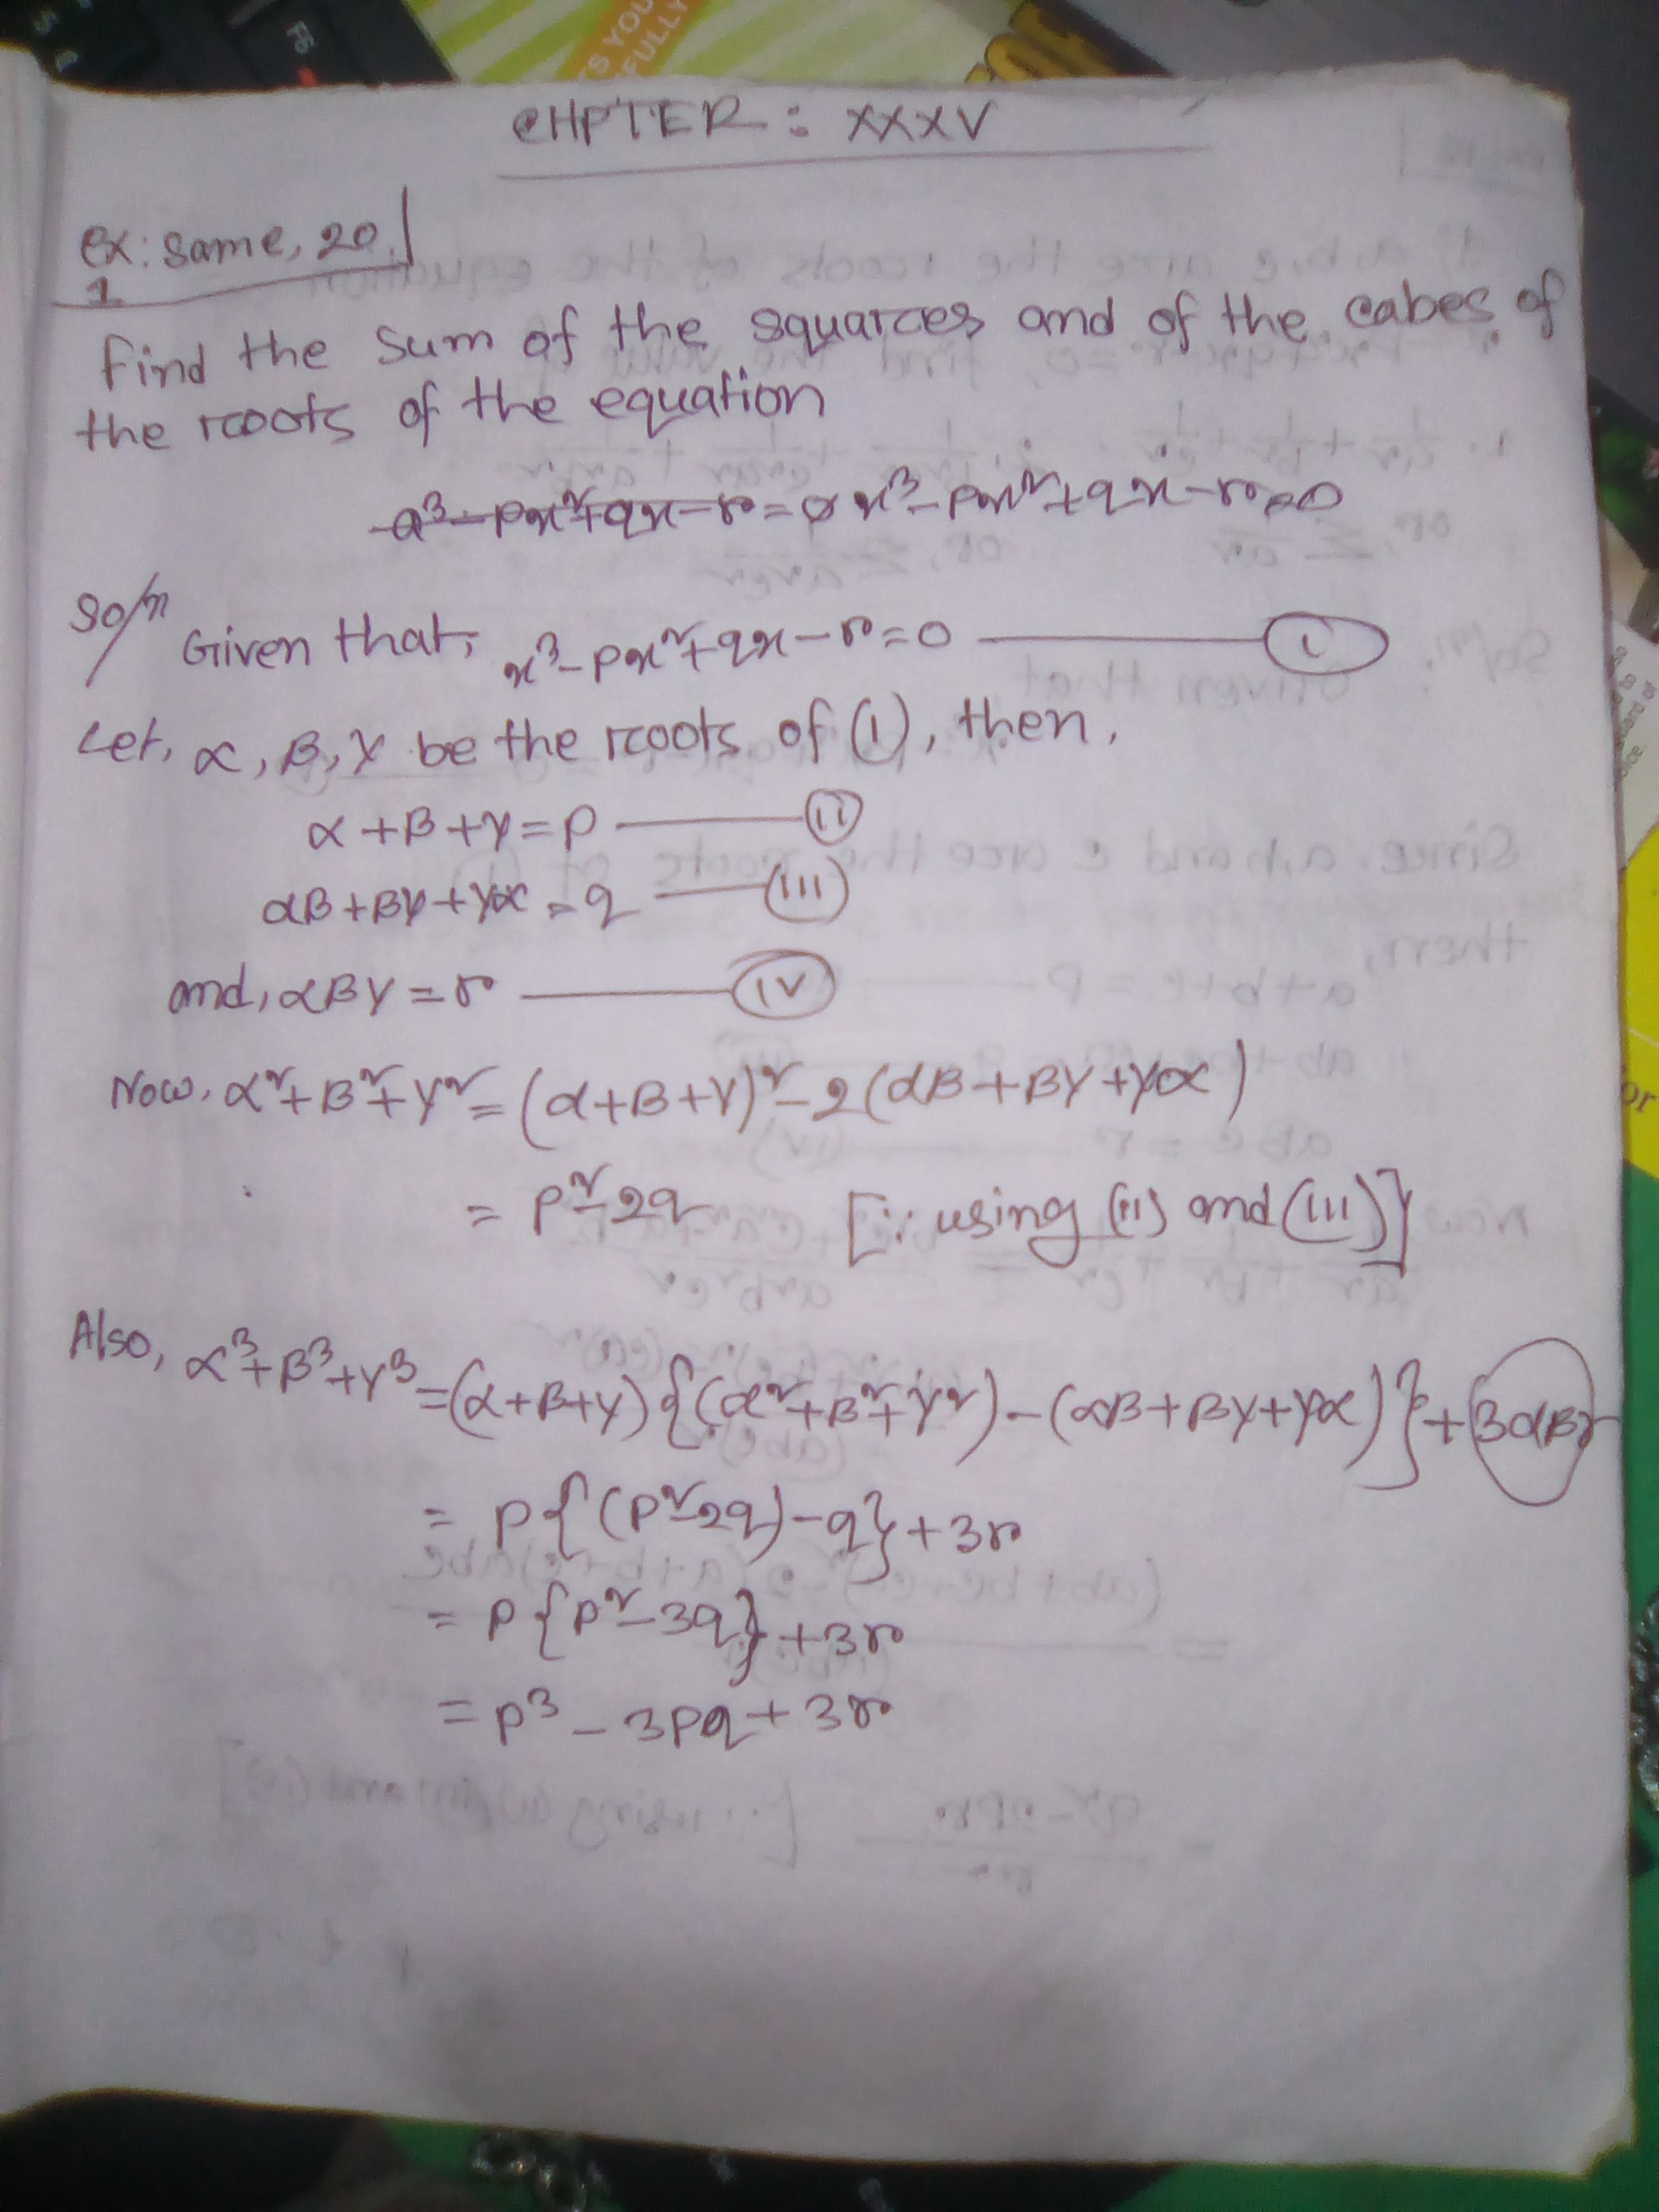 CHPTER : XXXV
ex: same, 20
1
find the sum of the squares and of the cabes of
the roots of the equation
a³ - px²+qx-r=0 x³-px²+qx-r=0
Solⁿ Given that, x³-px²+qx-r=0 (I)
Let, α, β, γ be the roots of (1), then,
α+β+γ=p (II)
αβ+βγ+γα=q (III)
and, αβγ=r (IV)
Now, α²+β²+γ²=(α+β+γ)²-2(αβ+βγ+γα)
= p²-2q [∵ using (II) and (III)]
Also, α³+β³+γ³=(α+β+γ){(α²+β²+γ²)-(αβ+βγ+γα)}+3αβγ
= p{(p²-2q)-q}+3r
= p{p²-3q}+3r
= p³-3pq+3r
F6